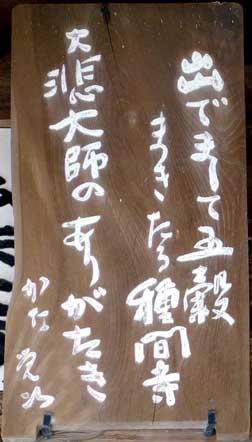 出でまして五穀
まきたる種間寺
大悲大師のありがたき
かな